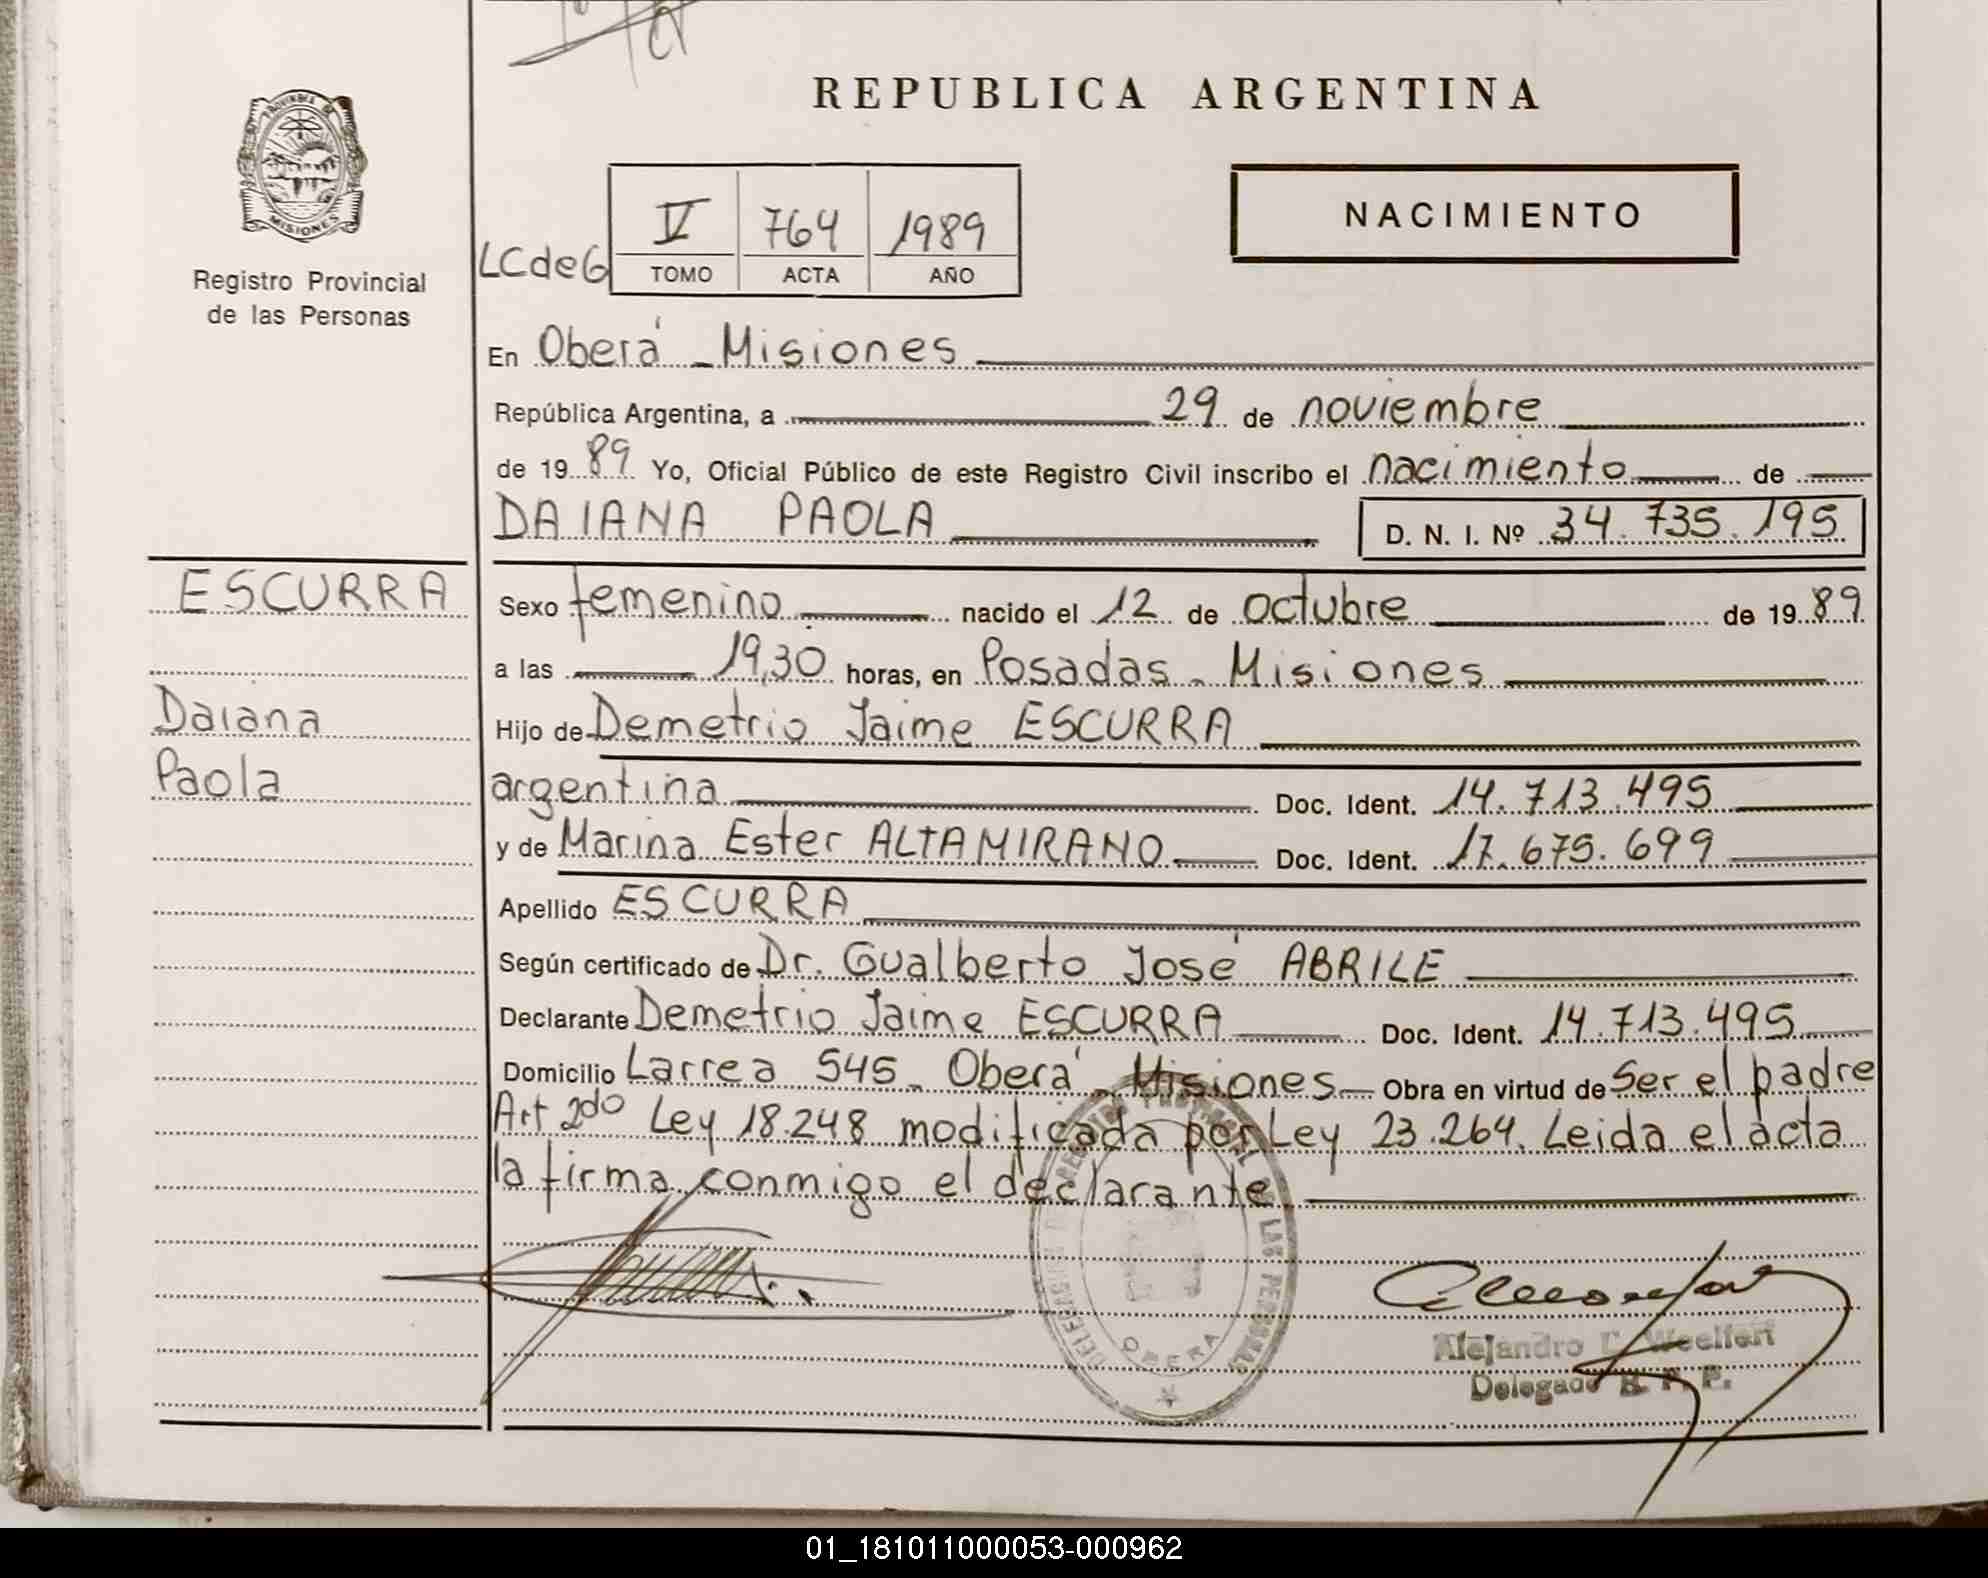 REPUBLICA ARGENTINA
PROVINCIA DE
MISIONES
Registro Provincial
de las Personas
LCdeG
V 764 1989
TOMO ACTA AÑO
NACIMIENTO
En Oberá - Misiones
República Argentina, a 29 de noviembre
de 19 89 Yo, Oficial Público de este Registro Civil inscribo el nacimiento de
DAIANA PAOLA D. N. I. Nº 34.735.195
ESCURRA
Daiana
Paola
Sexo femenino nacido el 12 de octubre de 19 89
a las 19,30 horas, en Posadas - Misiones
Hijo de Demetrio Jaime ESCURRA
argentina Doc. Ident. 14.713.495
y de Marina Ester ALTAMIRANO Doc. Ident. 17.675.699
Apellido ESCURRA
Según certificado de Dr. Gualberto José ABRILE
Declarante Demetrio Jaime ESCURRA Doc. Ident. 14.713.495
Domicilio Larrea 545 - Oberá - Misiones - Obra en virtud de Ser el padre
Art 2do Ley 18.248 modificada por Ley 23.264. Leida el acta
la firma conmigo el declarante
DELEGACION REGISTRO PROVINCIAL DE LAS PERSONAS
OBERA
Alejandro Woelfert
Delegado R. P. P.
01_181011000053-000962